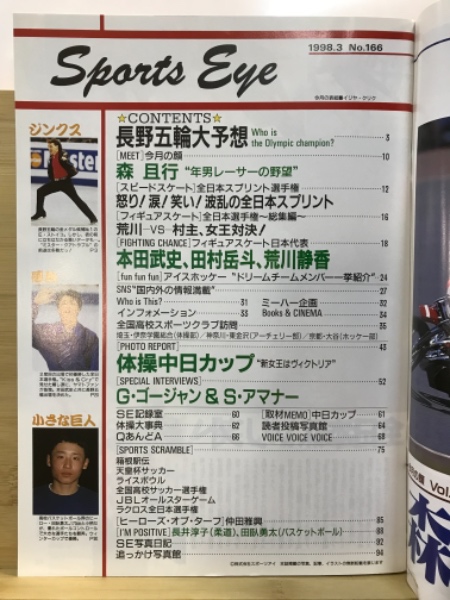 Sports Eye
1998.3 No.166
今月の表紙■イリヤ・クリク
☆CONTENTS☆
長野五輪大予想 Who is the Olympic champion? 3
[MEET]今月の顔 10
森 且行 “年男レーサーの野望”
[スピードスケート]全日本スプリント選手権 12
怒り!涙!笑い!波乱の全日本スプリント
[フィギュアスケート]全日本選手権〜総集編〜 16
荒川―VS―村主、女王対決!
[FIGHTING CHANCE]フィギュアスケート日本代表 18
本田武史、田村岳斗、荒川静香
[fun fun fun]アイスホッケー “ドリームチームメンバー一挙紹介” 24
SNS“国内外の情報満載” 27
Who is This? 31
ミーハー企画 32
インフォメーション 33
Books & CINEMA 34
全国高校スポーツクラブ訪問 35
埼玉・伊奈学園総合(体操部)/神奈川・東金沢(アーチェリー部)/京都・大谷(ホッケー部)
[PHOTO REPORT] 43
体操中日カップ “新女王はヴィクトリア”
[SPECIAL INTERVIEWS] 52
G・ゴージャン&S・アマナー
SE記録室 60
[取材MEMO]中日カップ 61
体操大事典 62
読者投稿写真館 64
QあんどA 66
VOICE VOICE VOICE 68
[SPORTS SCRAMBLE] 75
箱根駅伝
天皇杯サッカー
ライスボウル
全国高校サッカー選手権
JBLオールスターゲーム
ラクロス全日本選手権
[ヒーローズ・オブ・ターフ]仲田雅興 85
[I'M POSITIVE]長井淳子(柔道)、田臥勇太(バスケットボール) 88
SE写真日記 92
追っかけ写真館 94
ジンクス
小さな巨人